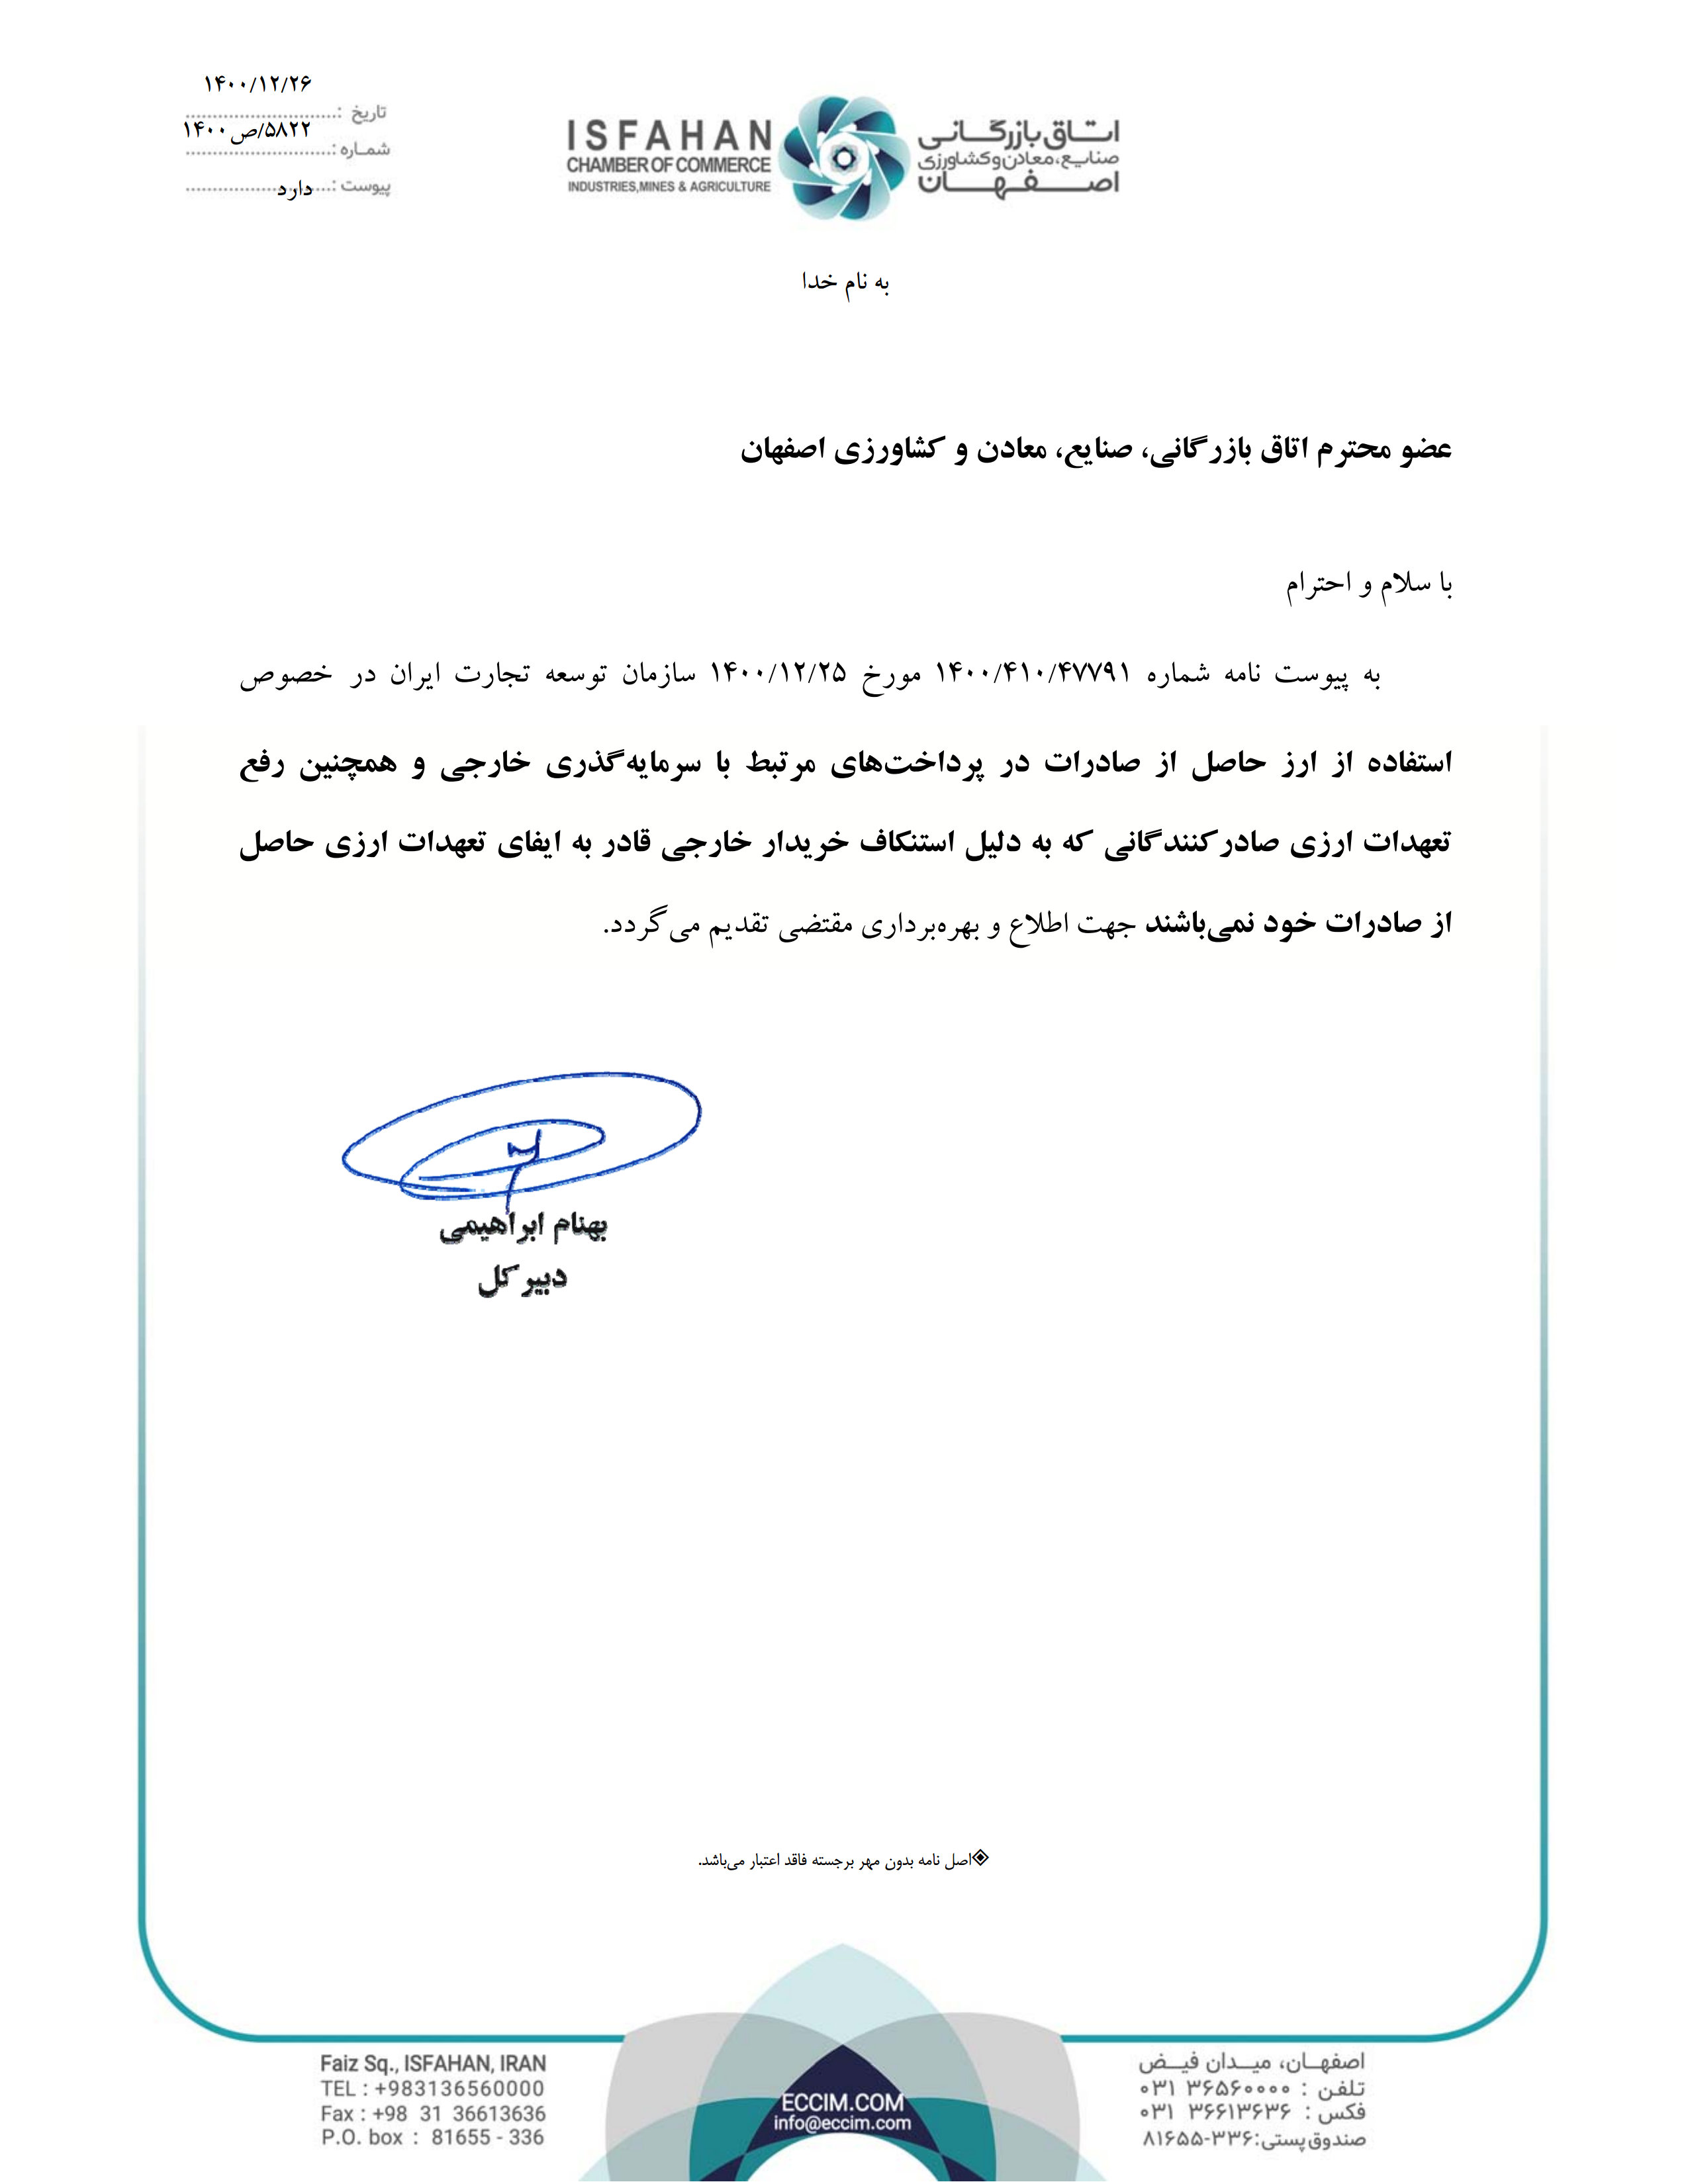 ۱۴۰۰/۱۲/۲۶
تاریخ :
۵۸۲۲/ص۱۴۰۰
شماره :
پیوست : دارد
ISFAHAN
CHAMBER OF COMMERCE
INDUSTRIES,MINES & AGRICULTURE
اتاق بازرگانی
صنایع،معادن و کشاورزی
اصفهان
به نام خدا
عضو محترم اتاق بازرگانی، صنایع، معادن و کشاورزی اصفهان
با سلام و احترام
به پیوست نامه شماره ۱۴۰۰/۴۱۰/۴۷۷۹۱ مورخ ۱۴۰۰/۱۲/۲۵ سازمان توسعه تجارت ایران در خصوص
استفاده از ارز حاصل از صادرات در پرداخت‌های مرتبط با سرمایه‌گذری خارجی و همچنین رفع
تعهدات ارزی صادرکنندگانی که به دلیل استنکاف خریدار خارجی قادر به ایفای تعهدات ارزی حاصل
از صادرات خود نمی‌باشند جهت اطلاع و بهره‌برداری مقتضی تقدیم می‌گردد.
بهنام ابراهیمی
دبیرکل
اصل نامه بدون مهر برجسته فاقد اعتبار می‌باشد.
Faiz Sq., ISFAHAN, IRAN
TEL : +983136560000
Fax : +98 31 36613636
P.O. box : 81655 - 336
ECCIM.COM
info@eccim.com
اصفهان، میدان فیض
تلفن : ۰۳۱ ۳۶۵۶۰۰۰۰
فکس : ۰۳۱ ۳۶۶۱۳۶۳۶
صندوق پستی:۸۱۶۵۵-۳۳۶